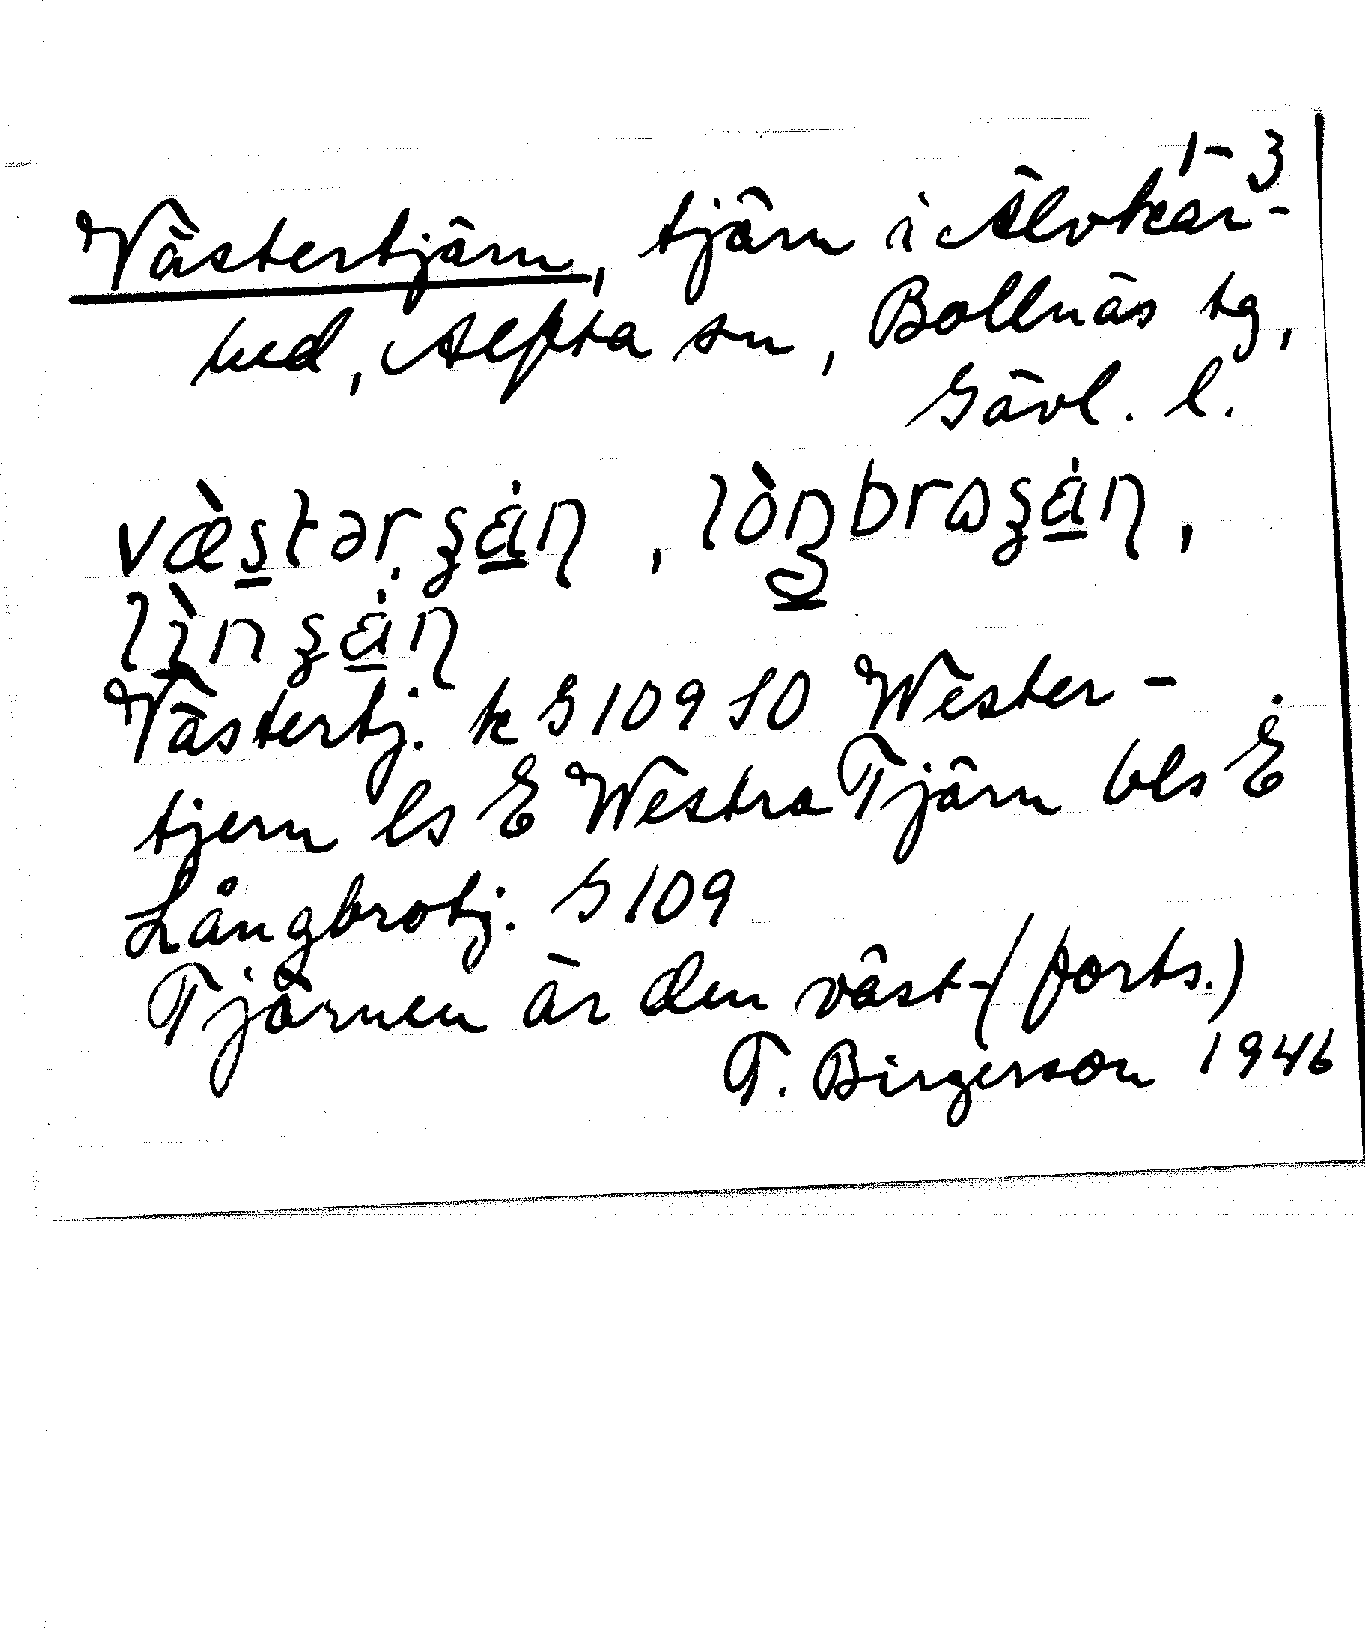 1-3
Västertjärn, tjärn i Älvkar-
hed, Alfta sn, Bollnäs tg,
Gävl. l.
Västertj. k G 109 SO Wester-
tjern ls E Westra Tjärn bls E
Långbrotj. G 109
Tjärnen är den väst- (forts.)
T. Birgerson 1946